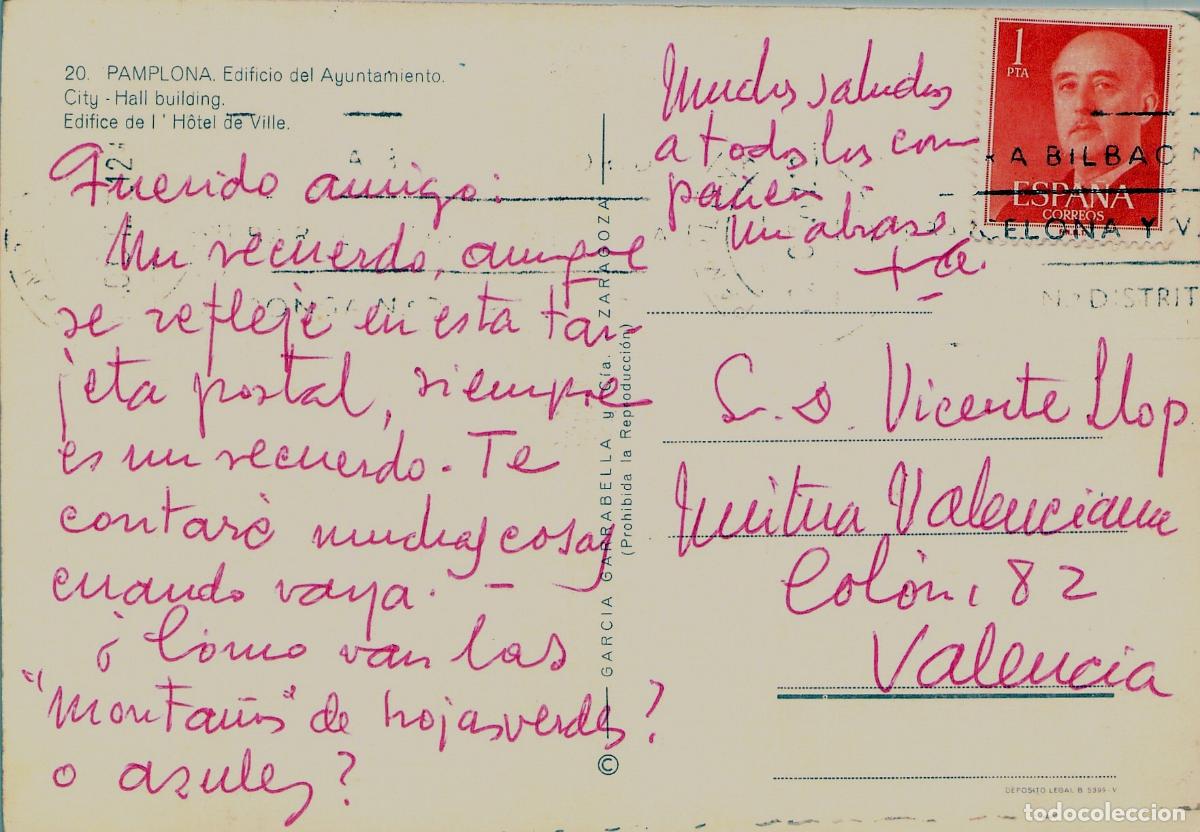 20. PAMPLONA. Edificio del Ayuntamiento.
City - Hall building.
Edifice de l ' Hôtel de Ville.
Querido amigo:
Un recuerdo, aunque
se refleje en esta tar-
jeta postal, siempre
es un recuerdo. Te
contaré muchas cosas
cuando vaya. -
¿Cómo van las
"montañas" de hojas verdes?
o azules?
© GARCIA GARRABELLA y Cía. ZARAGOZA
(Prohibida la Reproducción)
Muchos saludos
a todos los com
pañeros
Un abrazo
1
PTA
ESPAÑA
CORREOS
A BILBAO
CELONA Y V
Nº DISTRIT
S. D. Vicente Llop
Mutua Valenciana
Colón, 82
Valencia
DEPOSITO LEGAL B 5399 - V
todocoleccion